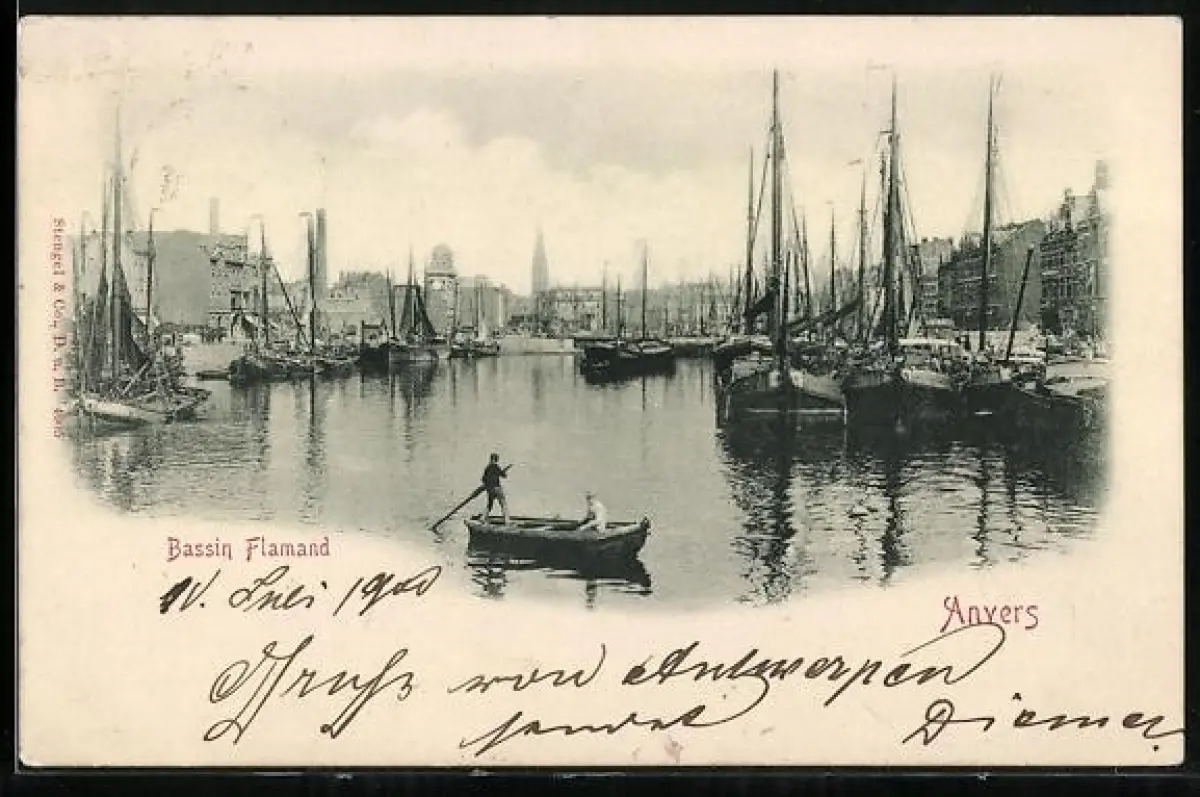 Stengel & Co., D. u. B.
Bassin Flamand
Juli 1900
Anvers
Gruss von Antwerpen
sendet Diemer